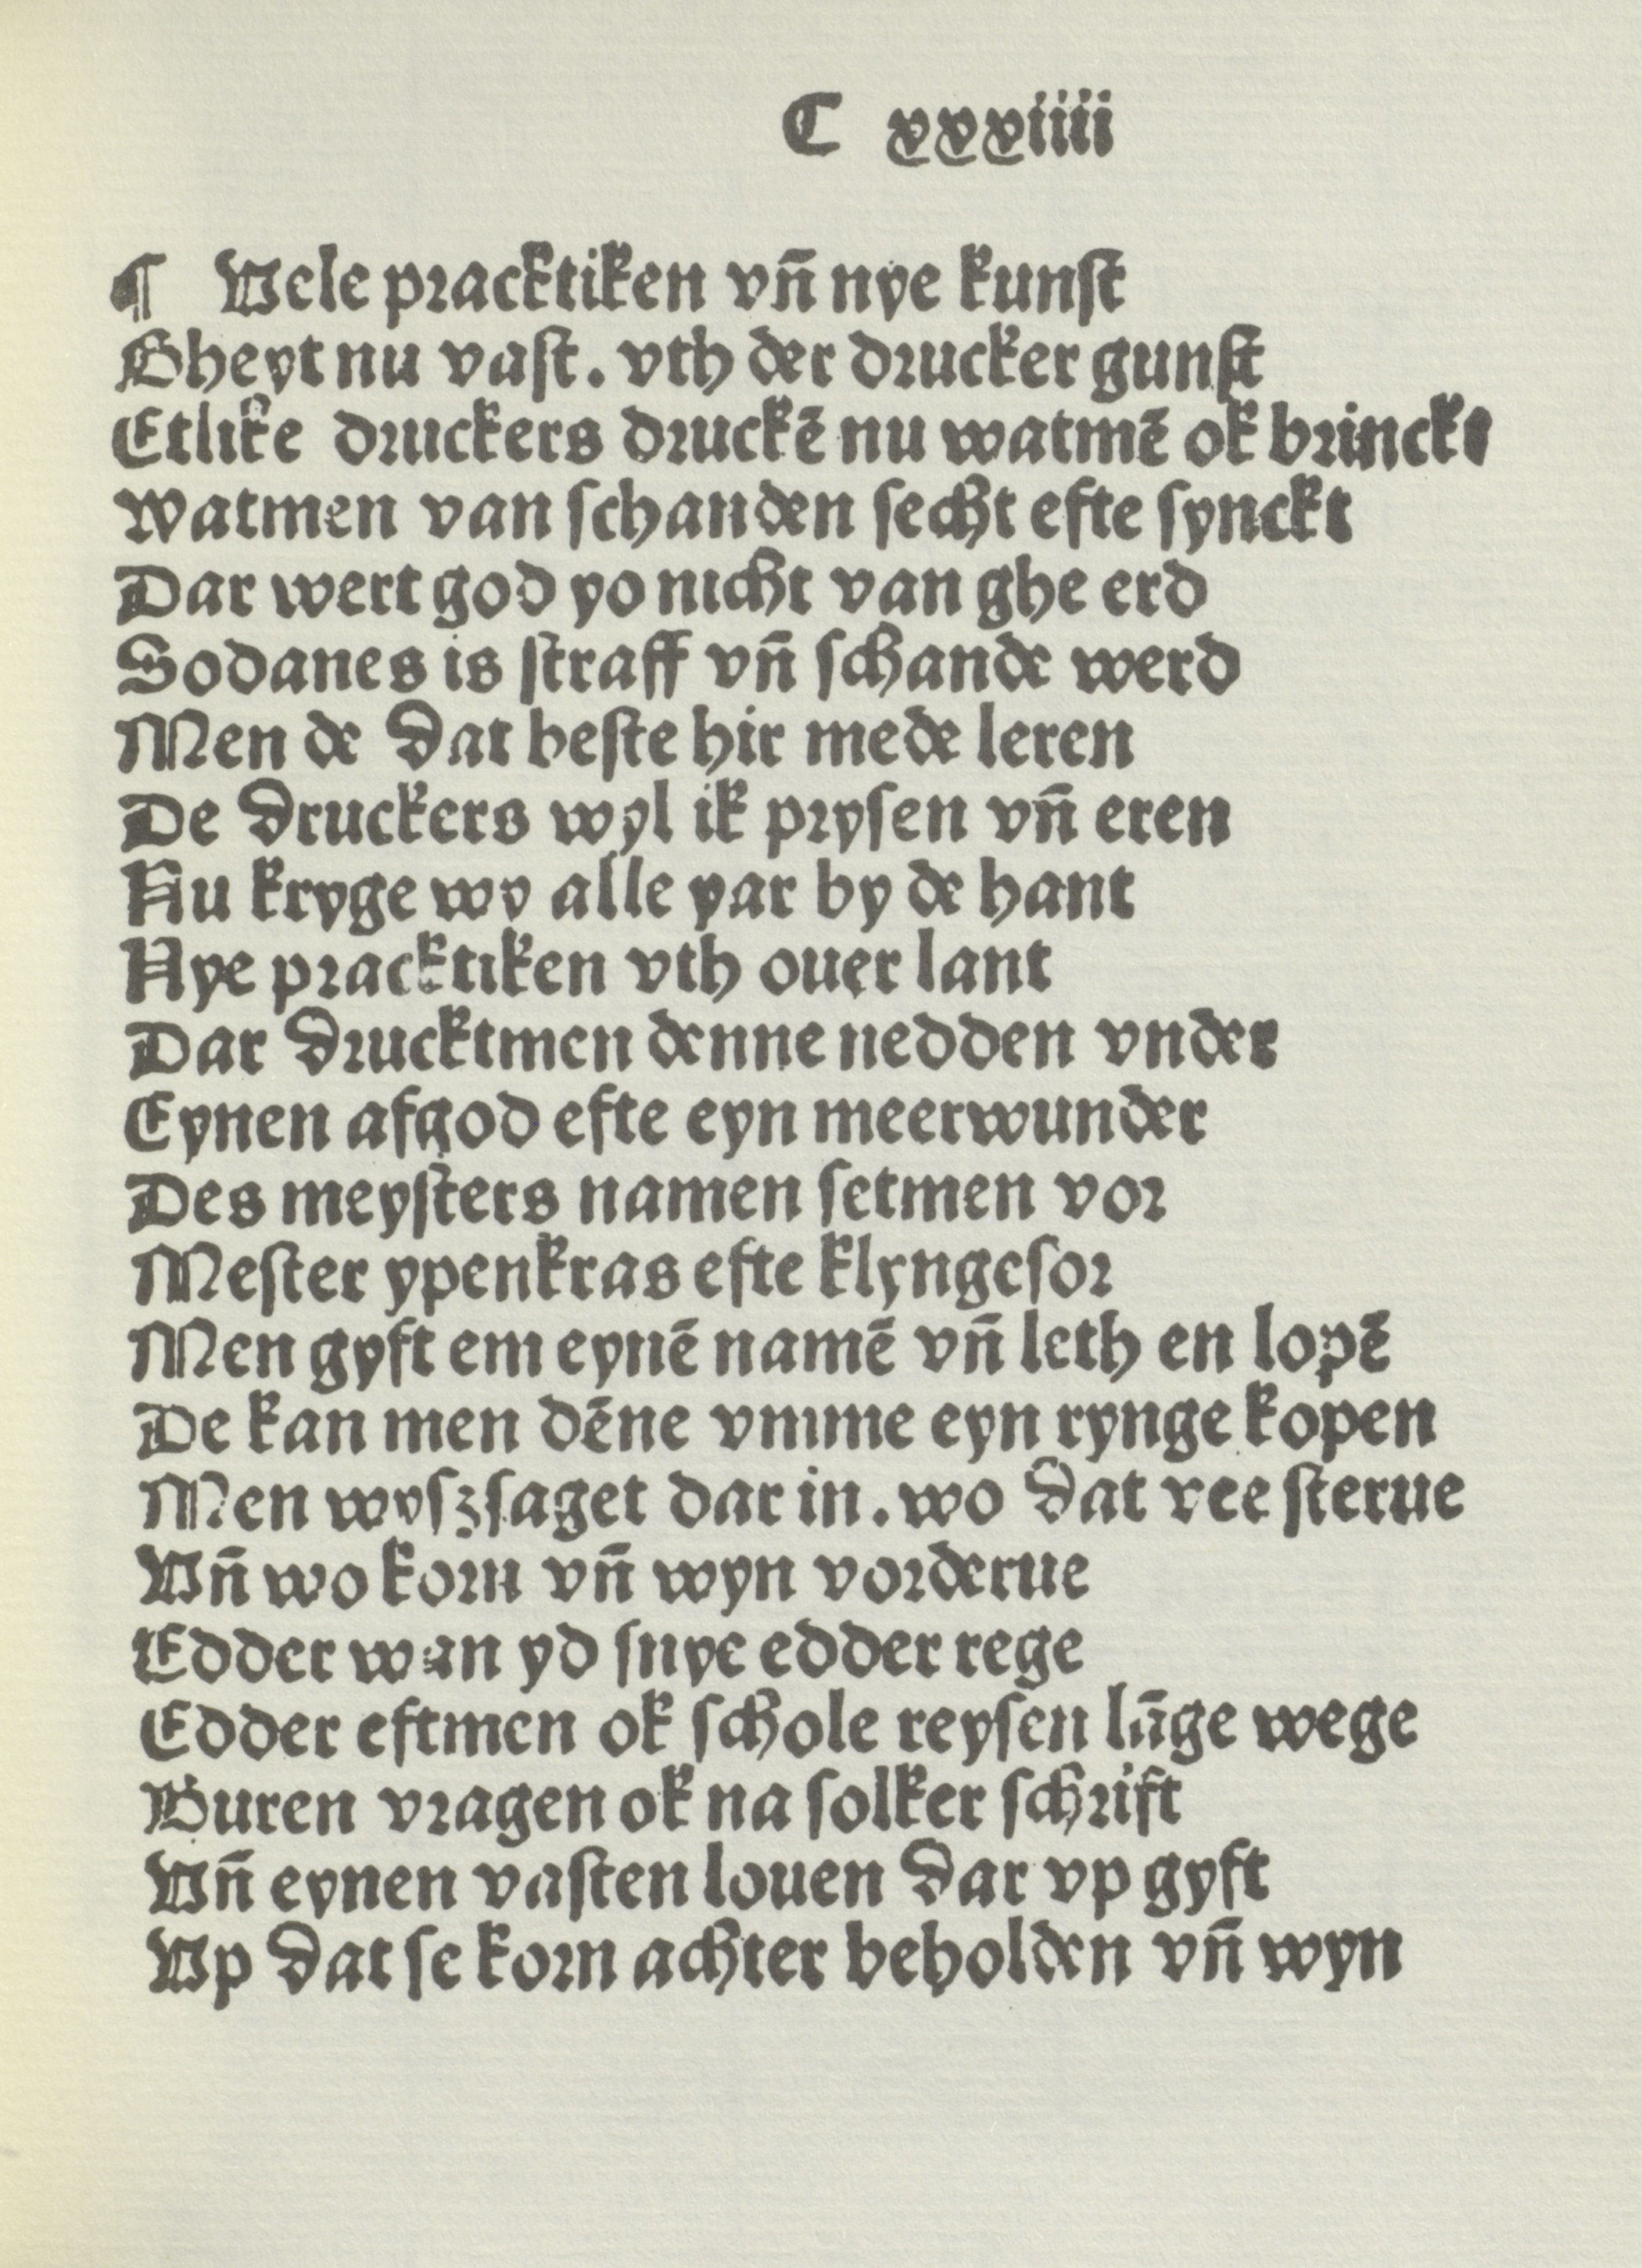 C xxxiiii
¶ Vele pracktiken vñ nye kunſt
Gheyt nu vaſt. vth der drucker gunſt
Etlike druckers druckē nu watmē ok brinckt
Watmen van ſchanden ſecht efte ſynckt
Dar wert god yo nicht van ghe erd
Sodanes is ſtraff vñ ſchande werd
Men de dat beſte hir mede leren
De druckers wyl ik pryſen vñ eren
Nu kryge wy alle yar by de hant
Nye pracktiken vth ouer lant
Dar drucktmen denne nedden vnder
Eynen afgod efte eyn meerwunder
Des meyſters namen ſetmen vor
Meſter ypenkras efte klyngeſor
Men gyft em eynē namē vñ leth en lopē
De kan men dēne vmme eyn rynge kopen
Men wyſzſaget dar in. wo dat vee ſterue
Vñ wo korn vñ wyn vorderue
Edder wan yd ſnye edder rege
Edder eftmen ok ſchole reyſen lāge wege
Buren vragen ok na ſolker ſchrift
Vñ eynen vaſten louen dar vp gyft
Vp dat ſe korn achter beholden vñ wyn